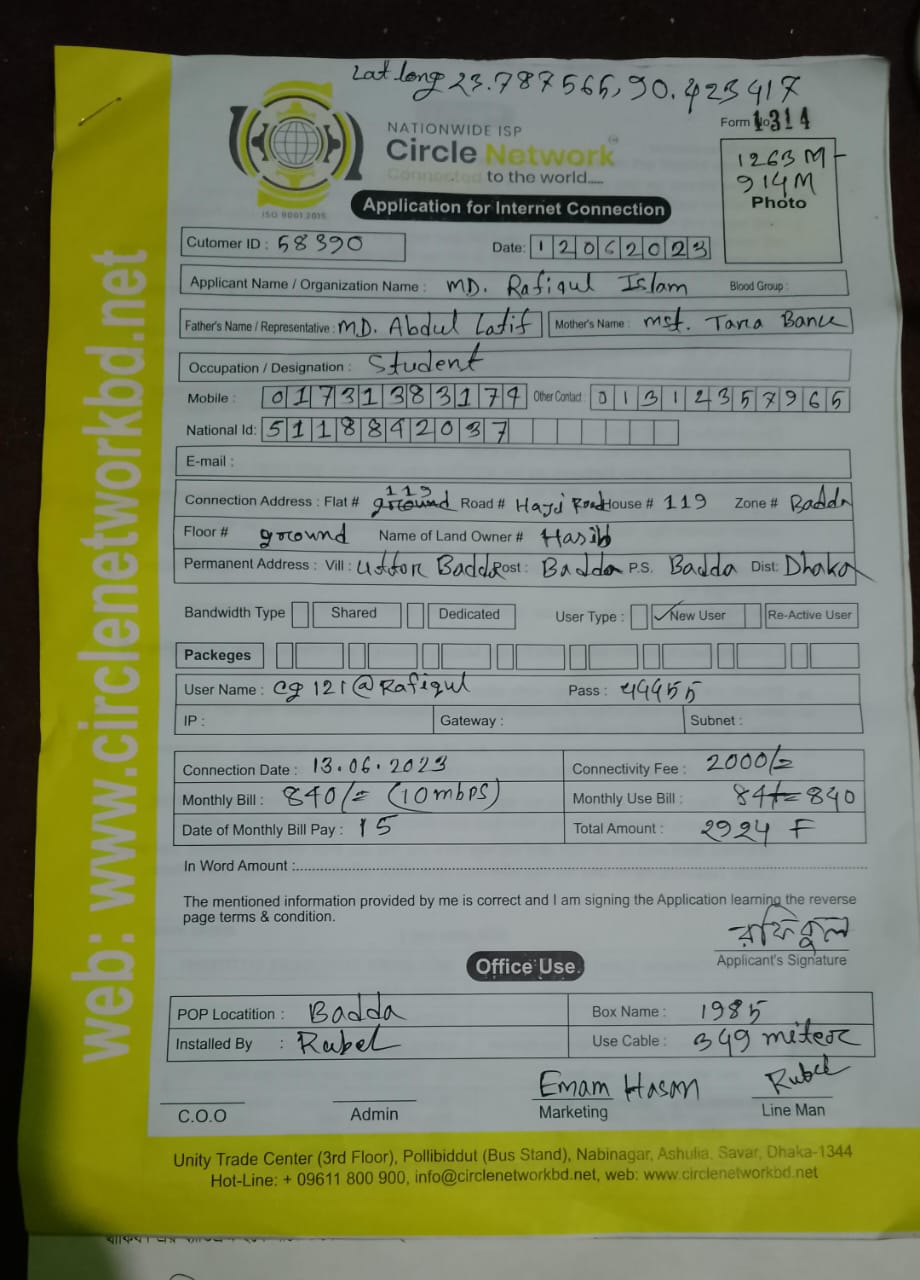 Lat long 23.787565, 90.423417
NATIONWIDE ISP
Circle Network
Connected to the world.....
ISO 9001:2015
Form No 1314
1263 M-
914 M
Photo
Application for Internet Connection
Cutomer ID : 58390
Date: 12062023
Applicant Name / Organization Name : MD. Rafiqul Islam Blood Group :
Father's Name / Representative : MD. Abdul Latif Mother's Name : Mst. Tara Banu
Occupation / Designation : Student
Mobile : 01731383174 Other Contact : 01312357965
National Id: 5118842037
E-mail :
Connection Address : Flat # 119 Road # Haji Road House # 119 Zone # Badda
Floor # ground Name of Land Owner # Hasib
Permanent Address : Vill : Uttor Badda Post : Badda P.S. Badda Dist: Dhaka
Bandwidth Type Shared Dedicated User Type : New User Re-Active User
Packeges
User Name : cg121@Rafiqul Pass : 44455
IP : Gateway : Subnet :
Connection Date : 13.06.2023 Connectivity Fee : 2000/=
Monthly Bill : 840/= (10mbps) Monthly Use Bill : 840
Date of Monthly Bill Pay : 15 Total Amount : 2924 F
In Word Amount :
The mentioned information provided by me is correct and I am signing the Application learning the reverse
page terms & condition.
রফিকুল
Applicant's Signature
Office Use.
POP Locatition : Badda Box Name : 1985
Installed By : Rubel Use Cable : 349 miter
Emam Hasan Rubel
C.O.O Admin Marketing Line Man
Unity Trade Center (3rd Floor), Pollibiddut (Bus Stand), Nabinagar, Ashulia, Savar, Dhaka-1344
Hot-Line: + 09611 800 900, info@circlenetworkbd.net, web: www.circlenetworkbd.net
web: www.circlenetworkbd.net